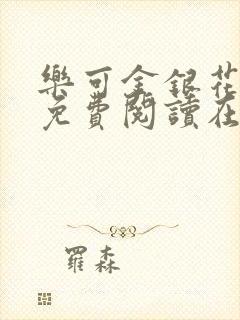 樂可金銀花
免費閱讀在
羅森